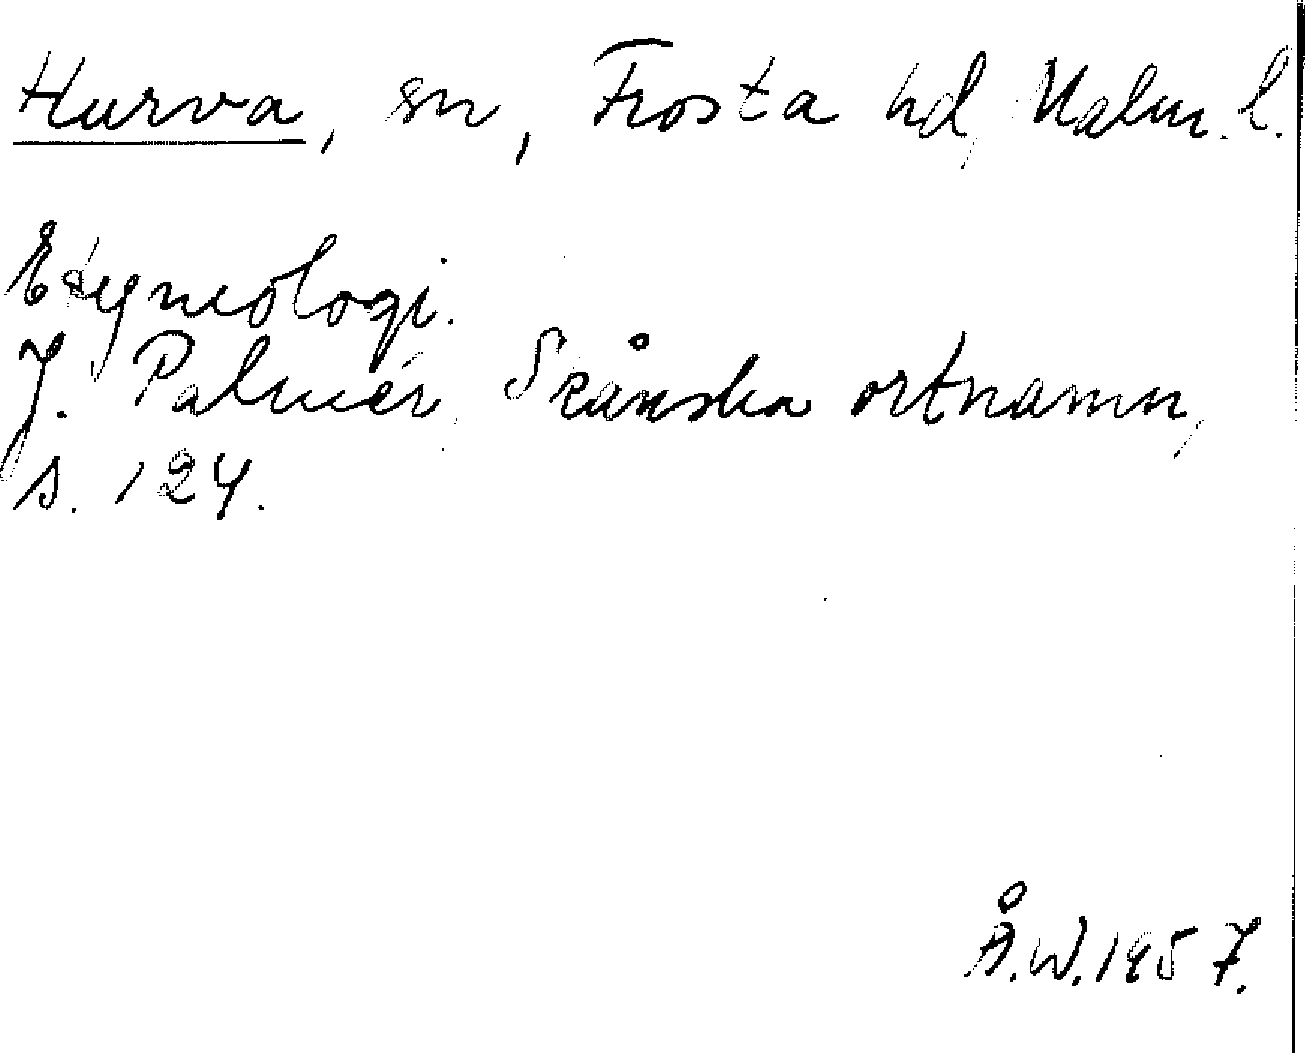 Hurva, sn, Frosta hd, Malm. l.
Etymologi.
J. Palmér, Skånska ortnamn,
s. 124.
Å.W. 1957.